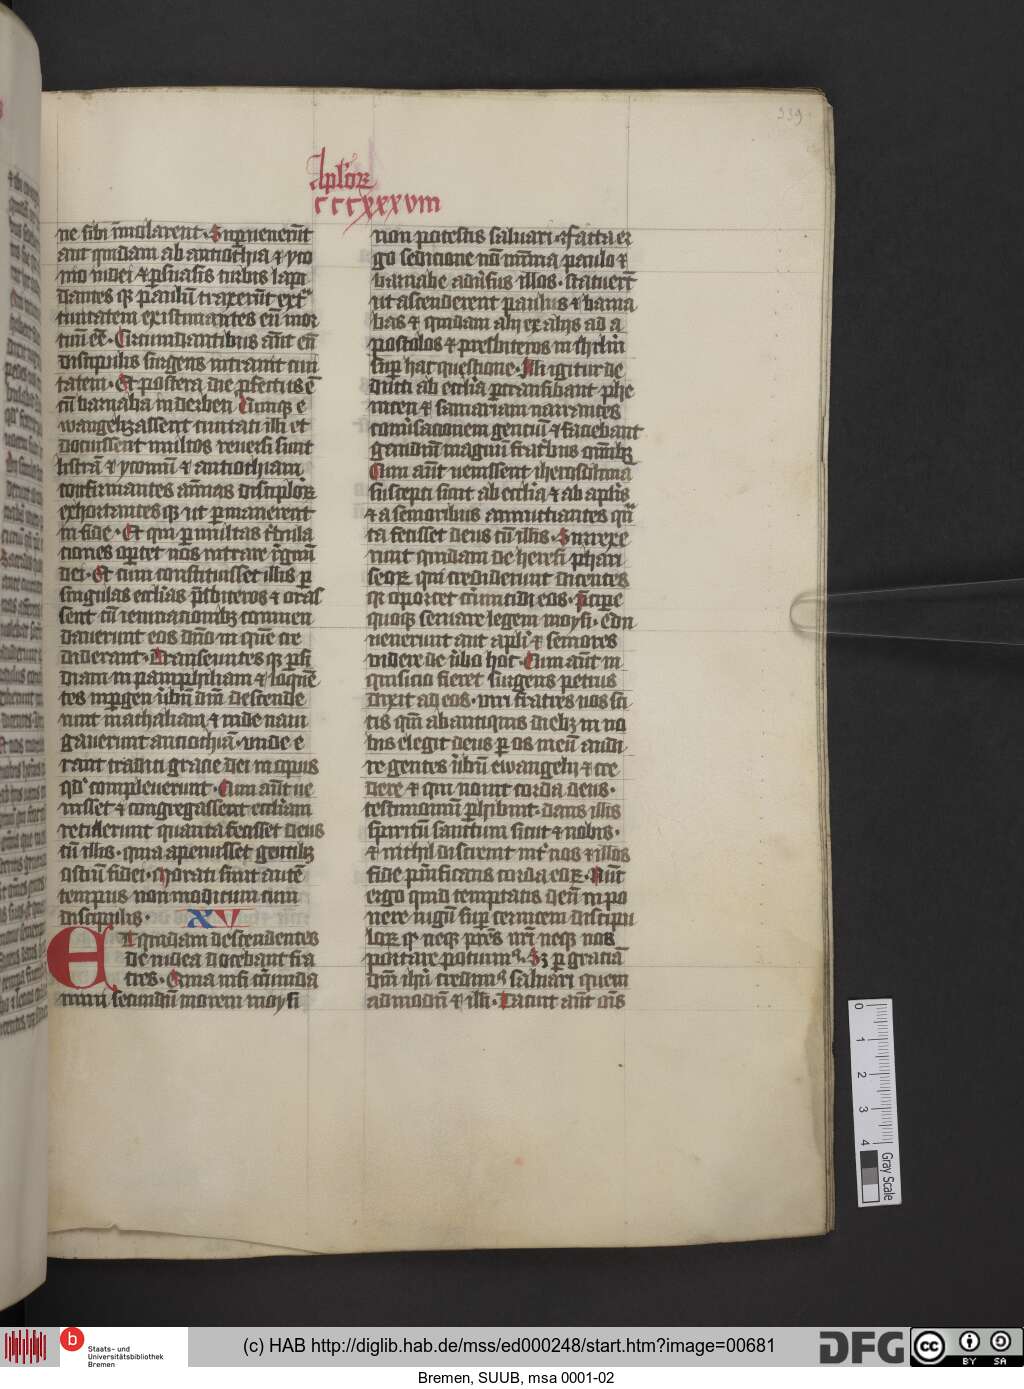 339
Aplor
cccxxxviii
ne sibi immolarent. Supueneru͞t
aut quidam ab antiochia ⁊ yco
nio iudei ⁊ psuasis turbis lapi
dantes q̷ paulu͞ traxeru͞t ext͛
ciuitatem existimantes eu͞ mor
tuu͞ e͞e. Circumdantibus au͞t eu͞
discipulis surgens intrauit ciui
tatem. Et postera die pfectus e͞
cu͞ barnaba in derben Cumq̷ e
wangelizassent ciuitati illi et
docuissent multos reuersi sunt
listra͞ ⁊ yconiu͞ ⁊ antiochiam
confirmantes a͞i͞as discipulor
exhortantes q̷ ut pmanerent
in fide. Et qui p multas t͛bula
tiones oportet nos intrare i͞ regnu͞
dei. Et cum constituisset illis p
singulas eccl͞ias p͛sbiteros ⁊ oras
sent cu͞ ieiunationib; commen
dauerunt eos d͞no in que͞ cre
diderant. Transeuntes q̷ pisi
diam in pamphiliam ⁊ loque͞
tes in pergen u͛bu͞ d͞m descende
runt in athaliam ⁊ inde naui
gauerunt antiochia͞. unde e
rant traditi gracie dei in opus
qd͛ compleuerunt. Cum au͞t ue
nisset ⁊ congregassent eccl͞iam
retulerunt quanta fecisset deus
cu͞ illis. quia aperuisset gentib;
ostiu͞ fidei. Morati sunt aute͞
tempus non modicum cum
discipulis. XV
ET quidam descendentes
de iudea docebant fra
tres. Quia nisi circu͞cida
mini secundu͞ morem moysi
non potestis saluari. ⁊ facta er
go sedicione no͞ mi͞ima paulo ⁊
barnabe adu͛sus illos. statueru͞t
ut ascenderent paulus ⁊ barna
bas ⁊ quidam alij ex alijs ad a
postolos ⁊ presbiteros in ihrl͞m
sup hac questione. Illi igitur de
ducti ab eccl͞ia ptransibant phe
nicen ⁊ samariam narrantes
conu͛sacionem gentiu͞ ⁊ faciebant
gaudiu͞ magnu͞ fratribus omnib;
Cum au͞t uenissent iherosolima
suscepti sunt ab eccl͞ia ⁊ ab ap͞lis
⁊ a senioribus annuntiantes qu͞
ta fecisset deus cu͞ illis. Surrexe
runt quidam de heresi phari
seor qui crediderunt dicentes
q̷ oportet circu͞cidi eos. Precipe
quoq̷ seruare legem moysi. Con
uenerunt aut apl͞i ⁊ seniores
uidere de u͛bo hoc. Cum au͞t m
quisicio fieret surgens petrus
dixit ad eos. uiri fratres uos sci
tis qm͞ ab antiquis dieb; in no
bis elegit deus p os meu͞ audi
re gentes u͛bu͞ ewangelij ⁊ cre
dere ⁊ qui nouit corda deus.
testimoniu͞ phibuit. dans illis
spiritu͞ sanctum sicut ⁊ nobis.
⁊ nichil discreuit int͛ nos ⁊ illos
fide purificans corda eor. Nu͞c
ergo quid temptatis deu͞ impo
nere iugu͞ sup ceruicem discipu
lor q̷ neq̷ p͞res n͞ri neq̷ nos
portare potuim9. S; p gracia͞
d͞ni ihu͞ credim9 saluari quem
admodu͞ ⁊ illi. Tacuit au͞t o͞is
0 1 2 3 4
Gray Scale
b
Staats- und
Universitätsbibliothek
Bremen
(c) HAB http://diglib.hab.de/mss/ed000248/start.htm?image=00681
DFG
cc BY SA
Bremen, SUUB, msa 0001-02